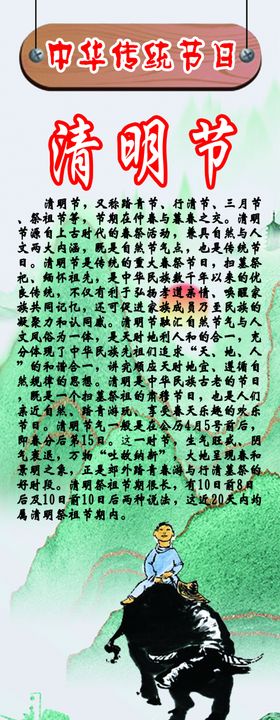 中华传统节日
清明节
清明节，又称踏青节、行清节、三月节
、祭祖节等，节期在仲春与暮春之交。清明
节源自上古时代的春祭活动，兼具自然与人
文两大内涵，既是自然节气点，也是传统节
日。清明节是传统的重大春祭节日，扫墓祭
祀、缅怀祖先，是中华民族数千年以来的优
良传统，不仅有利于弘扬孝道亲情、唤醒家
族共同记忆，还可促进家族成员乃至民族的
凝聚力和认同感。清明节融汇自然节气与人
文风俗为一体，是天时地利人和的合一，充
分体现了中华民族先祖们追求“天、地、人
”的和谐合一，讲究顺应天时地宜、遵循自
然规律的思想。清明是中华民族古老的节日
，既是一个扫墓祭祖的肃穆节日，也是人们
亲近自然、踏青游玩、享受春天乐趣的欢乐
节日。清明节气一般是在公历4月5号前后，
即春分后第15日。这一时节，生气旺盛，阴
气衰退，万物“吐故纳新”，大地呈现春和
景明之象，正是郊外踏青春游与行清墓祭的
好时段。清明祭祖节期很长，有10日前8日
后及10日前10日后两种说法，这近20天内均
属清明祭祖节期内。